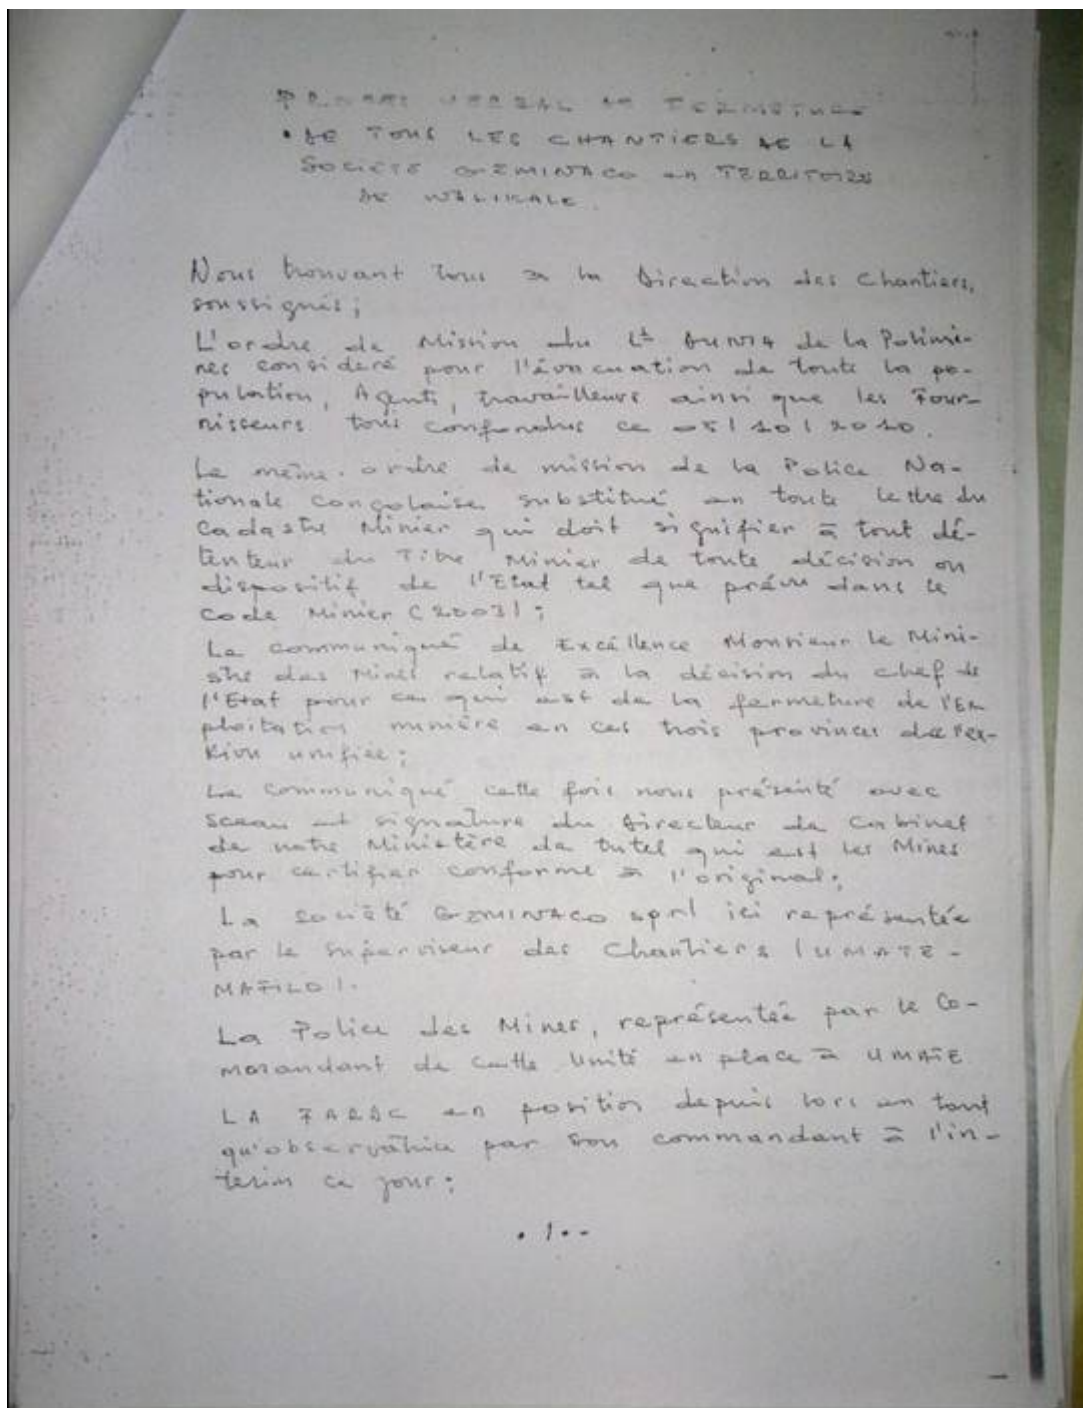 PROCES VERBAL DE FERMETURE
• DE TOUS LES CHANTIERS DE LA
SOCIETE GEMINACO en TERRITOIRE
DE WALIKALE.
Nous trouvant tous à la Direction des Chantiers,
soussignés ;
L'ordre de Mission du Lt de la Polimi-
nes consideré pour l'évacuation de toute la po-
pulation, Agents, travailleurs ainsi que les Four-
nisseurs tous confondus ce 05/10/2010.
Le même ordre de mission de la Police Na-
tionale congolaise substitué en toute lettre du
Cadastre Minier qui doit signifier à tout dé-
tenteur du Titre Minier de toute décision ou
dispositif de l'Etat tel que prévu dans le
Code Minier (2003) ;
Le communiqué de Excellence Monsieur le Mini-
stre des Mines relatif à la décision du chef de
l'Etat pour ce qui est de la fermeture de l'Ex-
ploitation minière en ces trois provinces de l'ex-
Kivu unifiée ;
Le communiqué cette fois nous présenté avec
sceau et signature du Directeur de Cabinet
de notre Ministère de tutel qui est les Mines
pour certifier conforme à l'original ;
La société GEMINACO sprl ici représentée
par le superviseur des Chantiers (UMATE-
MAFILO).
La Police des Mines, représentée par le Co-
mmandant de cette Unité en place à UMATE
LA FARDC en position depuis lors en tant
qu'observatrice par son commandant à l'in-
terim ce jour ;
• / • -